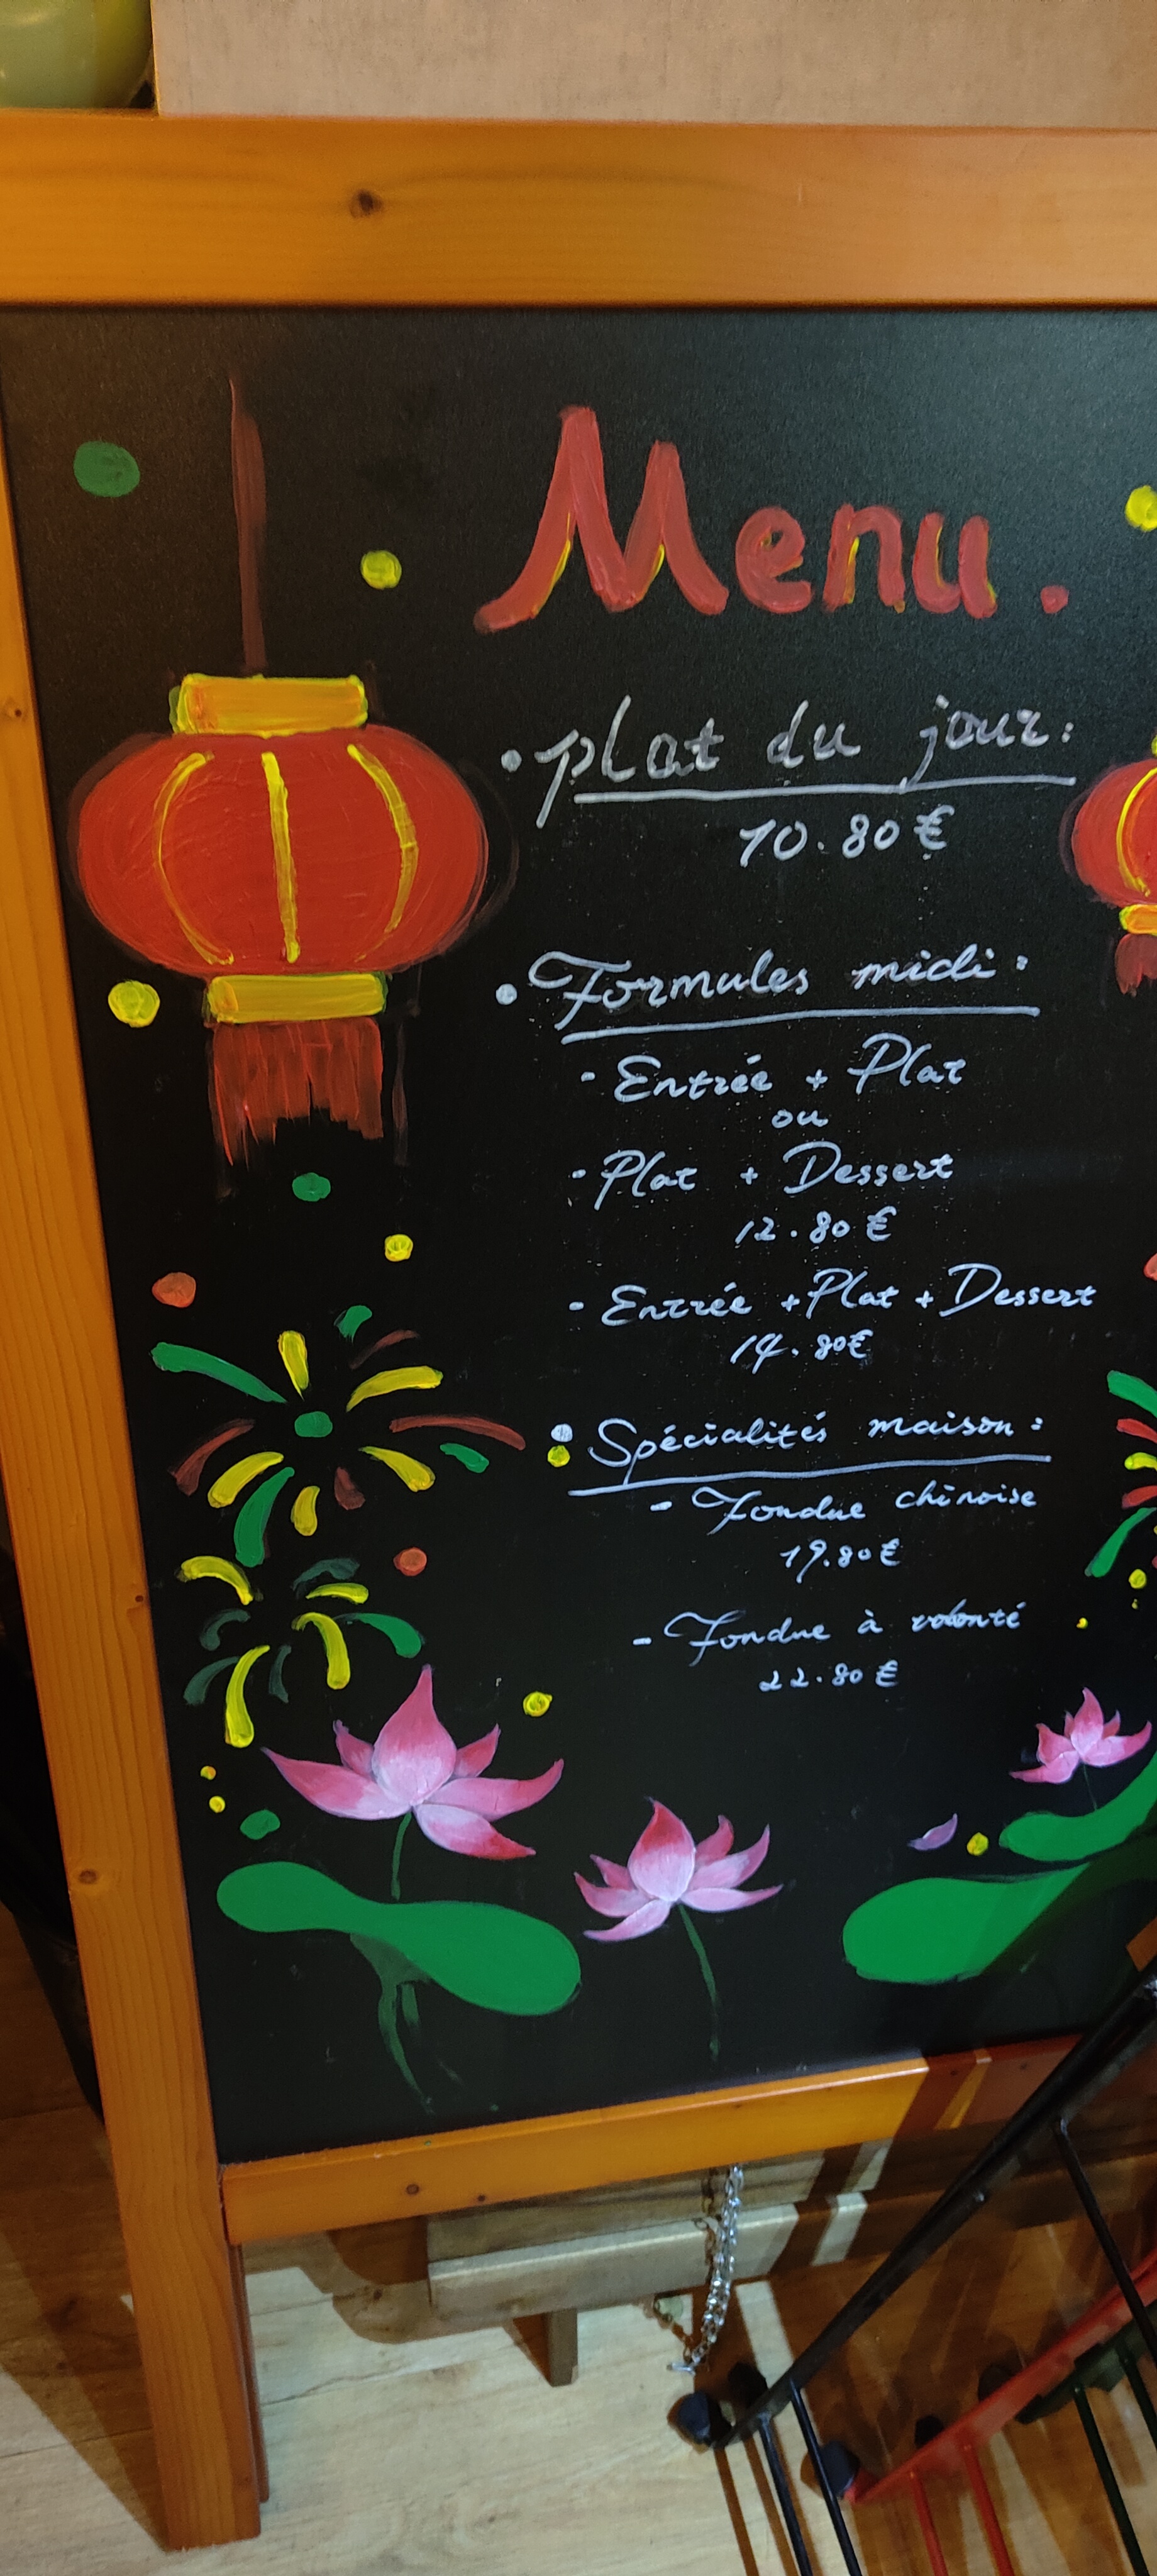 Menu.
• plat du jour:
10.80€
• Formules midi:
- Entrée + Plat
ou
- Plat + Dessert
12.80€
- Entrée + Plat + Dessert
14.80€
• Spécialités maison:
- Fondue chinoise
19.80€
- Fondue à volonté
22.80€